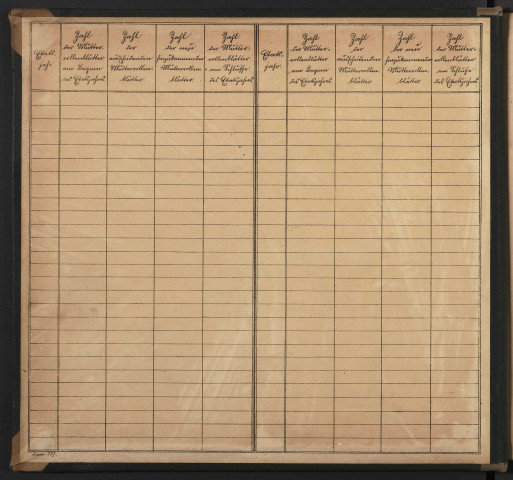 Etats-
jahr
Zahl
der Mutter-
rollenblätter
am Beginn
des Etatsjahres
Zahl
der
ausscheidenden
Mutterrollen-
blätter
Zahl
der neu
hinzukommenden
Mutterrollen-
blätter
Zahl
der Mutter-
rollenblätter
am Schlusse
des Etatsjahres
Etats-
jahr
Zahl
der Mutter-
rollenblätter
am Beginn
des Etatsjahres
Zahl
der
ausscheidenden
Mutterrollen-
blätter
Zahl
der neu
hinzukommenden
Mutterrollen-
blätter
Zahl
der Mutter-
rollenblätter
am Schlusse
des Etatsjahres